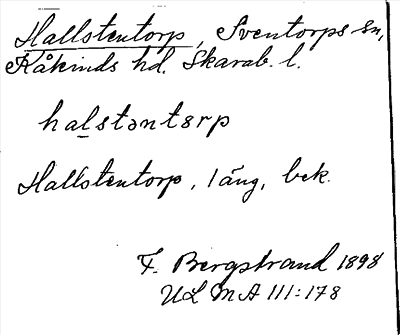 Hallstentorp, Sventorps sn,
Kåkinds hd. Skarab. l.
halstəntɵrp
Hallstentorp, 1 äng, bek.
F. Bergstrand 1898
ULMA 111:178